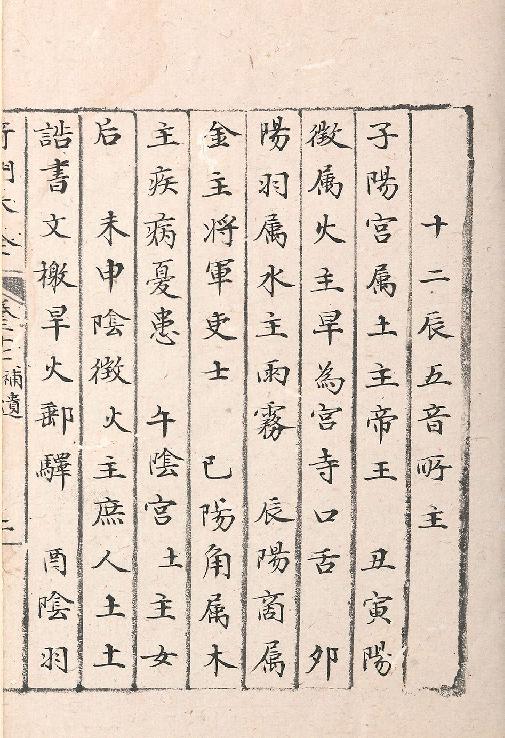 十二辰五音所主
子陽宮属土主帝王　丑寅陽
徴属火主旱為宮寺口舌　夘
陽羽属水主雨霧　辰陽商属
金主将軍吏士　巳陽角属木
主疾病憂患　午陰宮土主女
后　未申陰徴火主庶人土土
誥書文檄旱火郵驛　酉陰羽
補遺